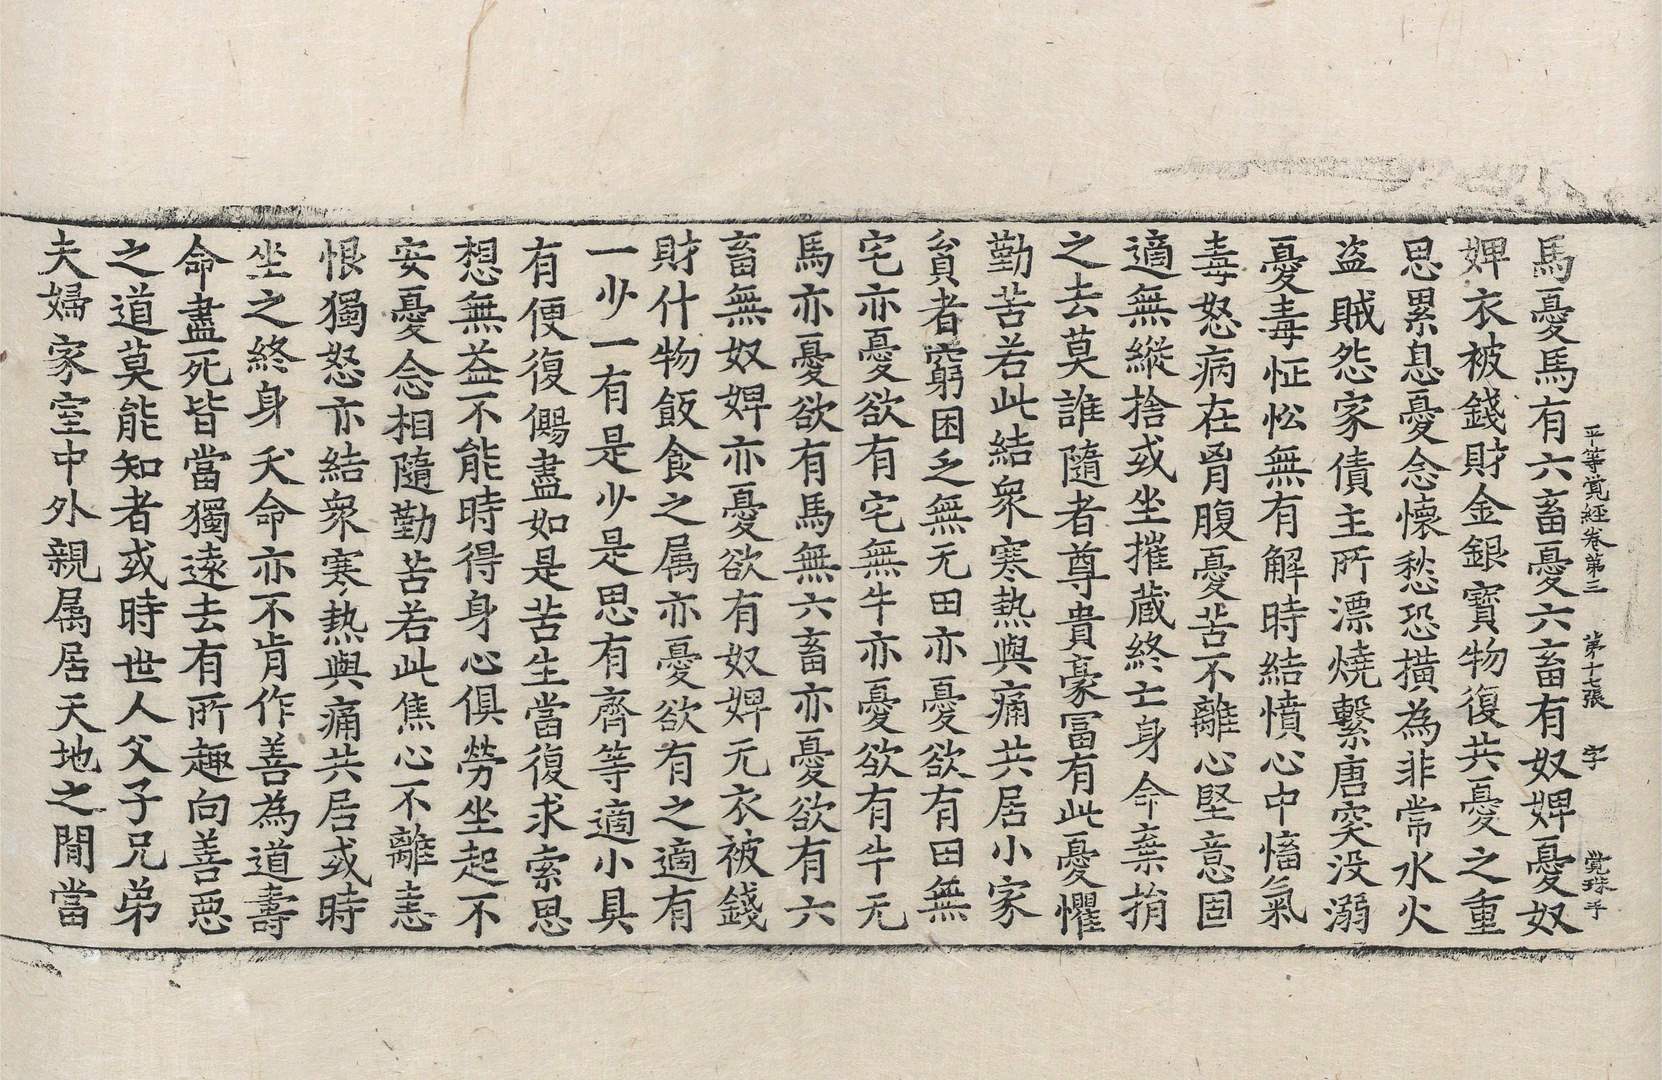 平等覚經卷第三　第十七張　字　覚珠手
馬憂馬有六畜憂六畜有奴婢憂奴
婢衣被錢財金銀寶物復共憂之重
思累息憂念懷愁恐橫為非常水火
盗賊怨家債主所漂燒繫唐突没溺
憂毒怔忪無有解時結憤心中慉氣
毒怒病在胷腹憂苦不離心堅意固
適無縱捨或坐摧蔵終亡身命棄捐
之去莫誰隨者尊貴豪冨有此憂懼
勤苦若此結衆寒熱與痛共居小家
貧者窮困乏無无田亦憂欲有田無
宅亦憂欲有宅無牛亦憂欲有牛无
馬亦憂欲有馬無六畜亦憂欲有六
畜無奴婢亦憂欲有奴婢无衣被錢
財什物飯食之属亦憂欲有之適有
一少一有是少是思有齊等適小具
有便復儩盡如是苦生當復求索思
想無益不能時得身心俱勞坐起不
安憂念相隨勤苦若此焦心不離恚
恨獨怒亦結衆寒熱與痛共居或時
坐之終身夭命亦不肯作善為道壽
命盡死皆當獨遠去有所趣向善惡
之道莫能知者或時世人父子兄弟
夫婦家室中外親属居天地之間當